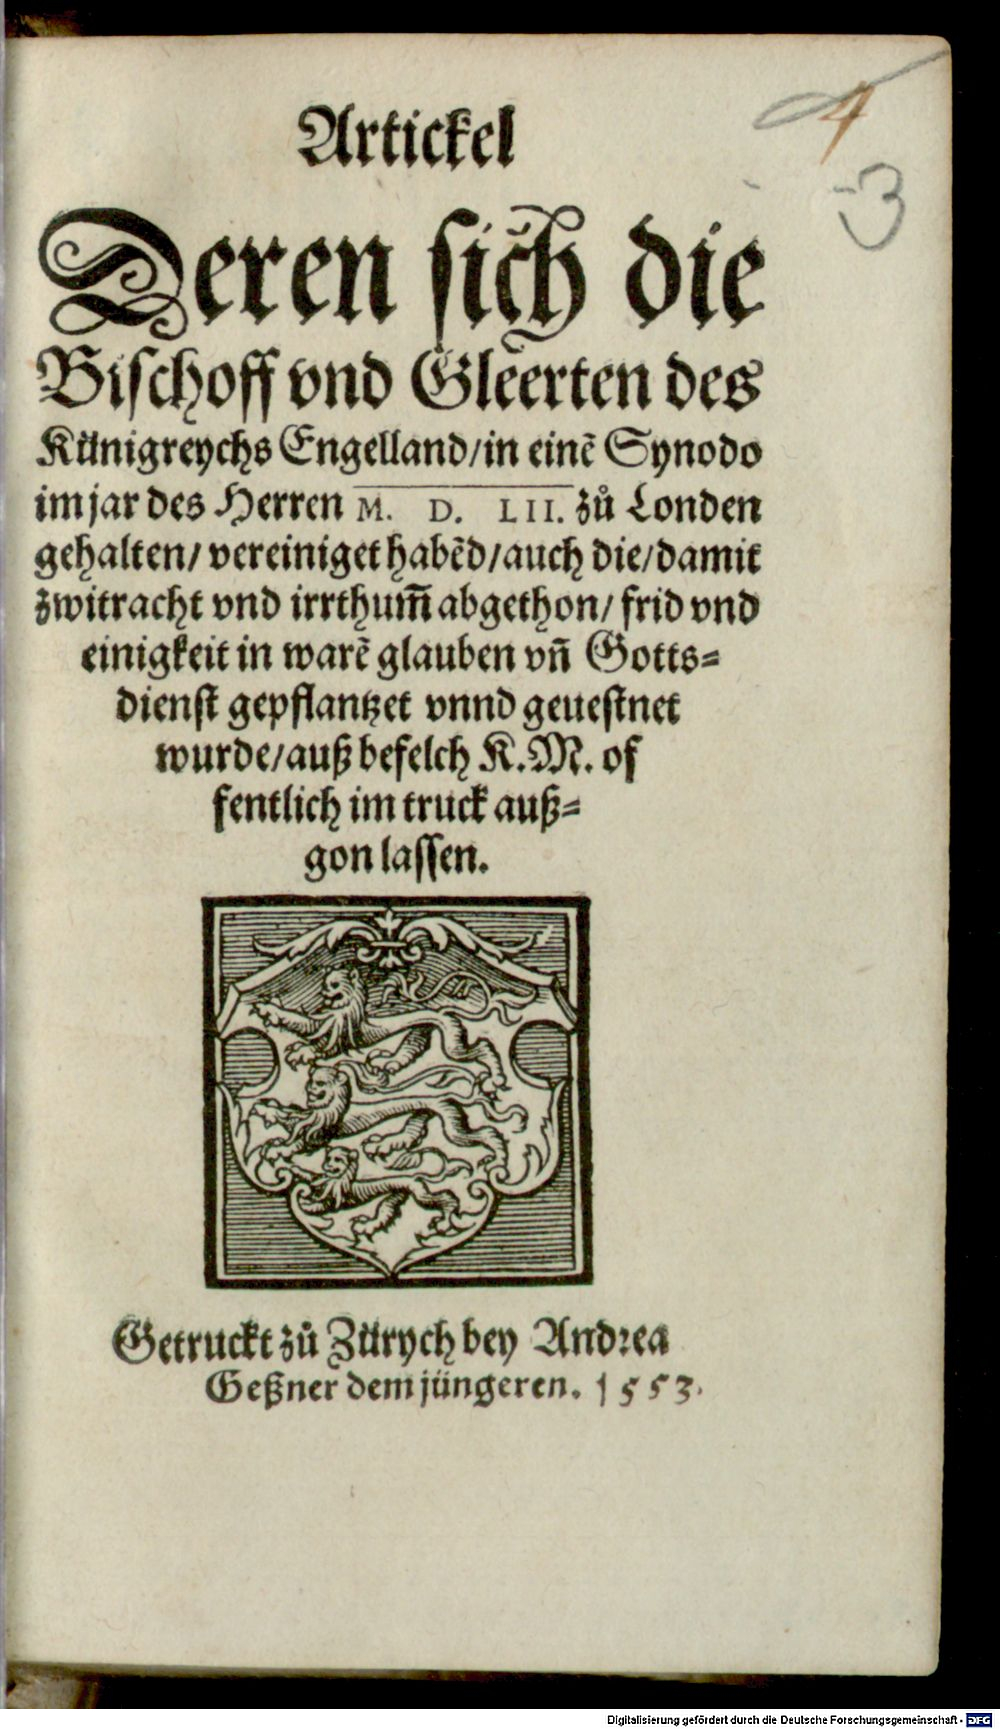 4
3
Artickel
Deren sich die
Bischoff vnd Gleerten des
Künigreychs Engelland/in einē Synodo
im jar des Herren M. D. LII. zů Londen
gehalten/ vereiniget habēd/auch die/damit
zwitracht vnd irrthum̄ abgethon/ frid vnd
einigkeit in warē glauben vn̄ Gotts⸗
dienst gepflantzet vnnd geuestnet
wurde/auß befelch K.M. of
fentlich im truck auß⸗
gon lassen.
Getruckt zů Zürych bey Andrea
Geßner dem jüngeren. 1553.
Digitalisierung gefördert durch die Deutsche Forschungsgemeinschaft - DFG